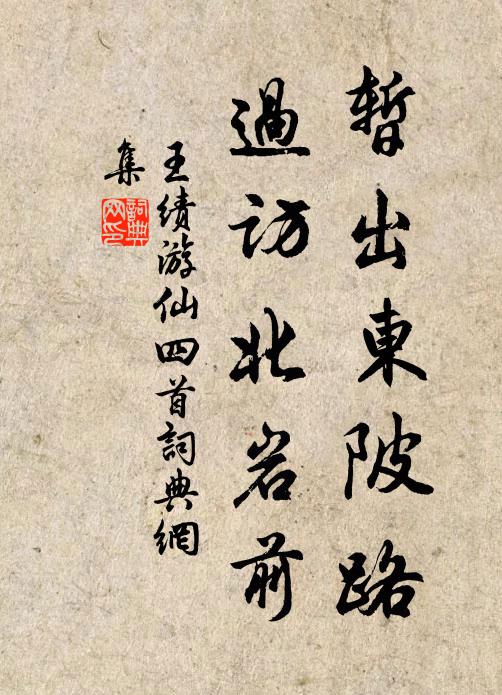 暫出東陂路
過訪北岩前
王績游仙四首詞典網
集
詞典網印